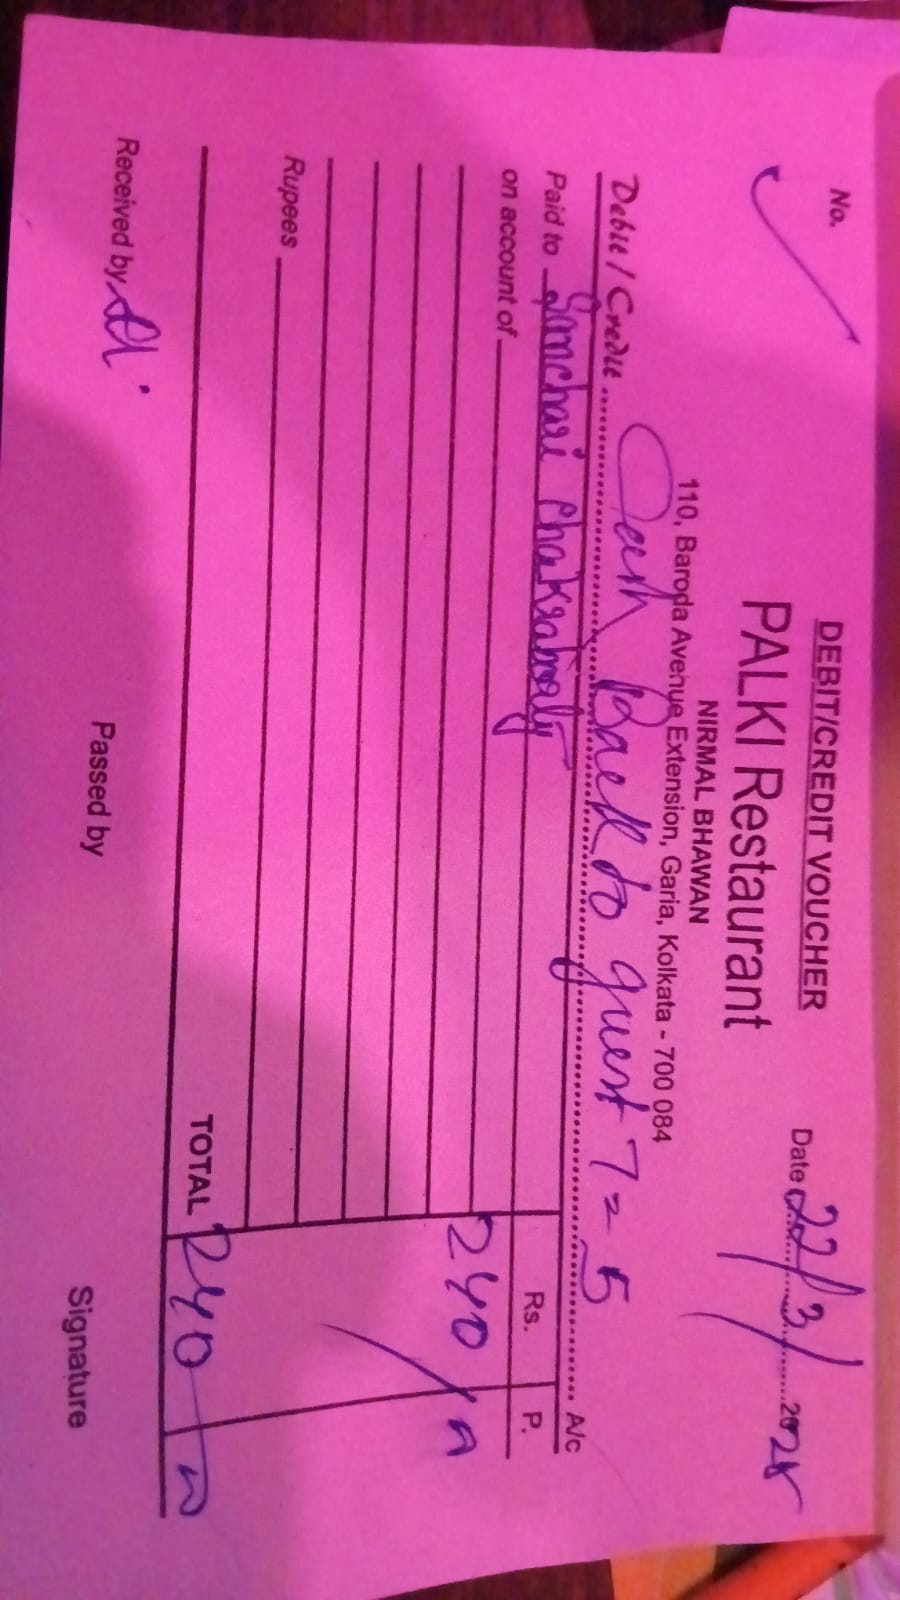 DEBIT/CREDIT VOUCHER
No.
PALKI Restaurant
Date 22/3/2025
NIRMAL BHAWAN
110, Baroda Avenue Extension, Garia, Kolkata - 700 084
Debit / Credit Cash Back to guest T = 5 A/c
Paid to Sanchari Chakraborty
Rs. P.
on account of
240/-
Rupees
TOTAL 240
Received by
Passed by
Signature